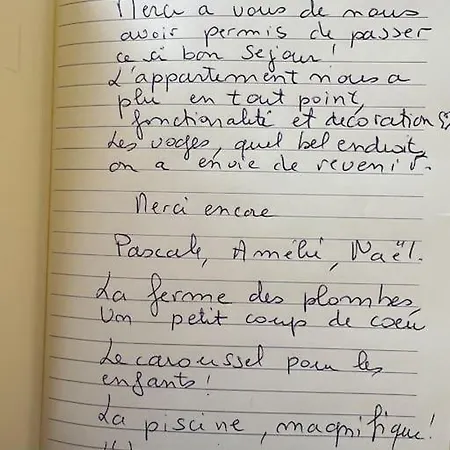 Merci a vous de nous
avoir permis de passer
ce si bon sejour!
L'appartement nous a
plu en tout point,
fonctionalité et décoration
Les voges, quel bel endroit,
on a envie de revenir.
Merci encore
Pascale, Amélie, Naël.
La ferme des plombes,
Un petit coup de coeu
Le caroussel pour les
enfants!
La piscine, magnifique!